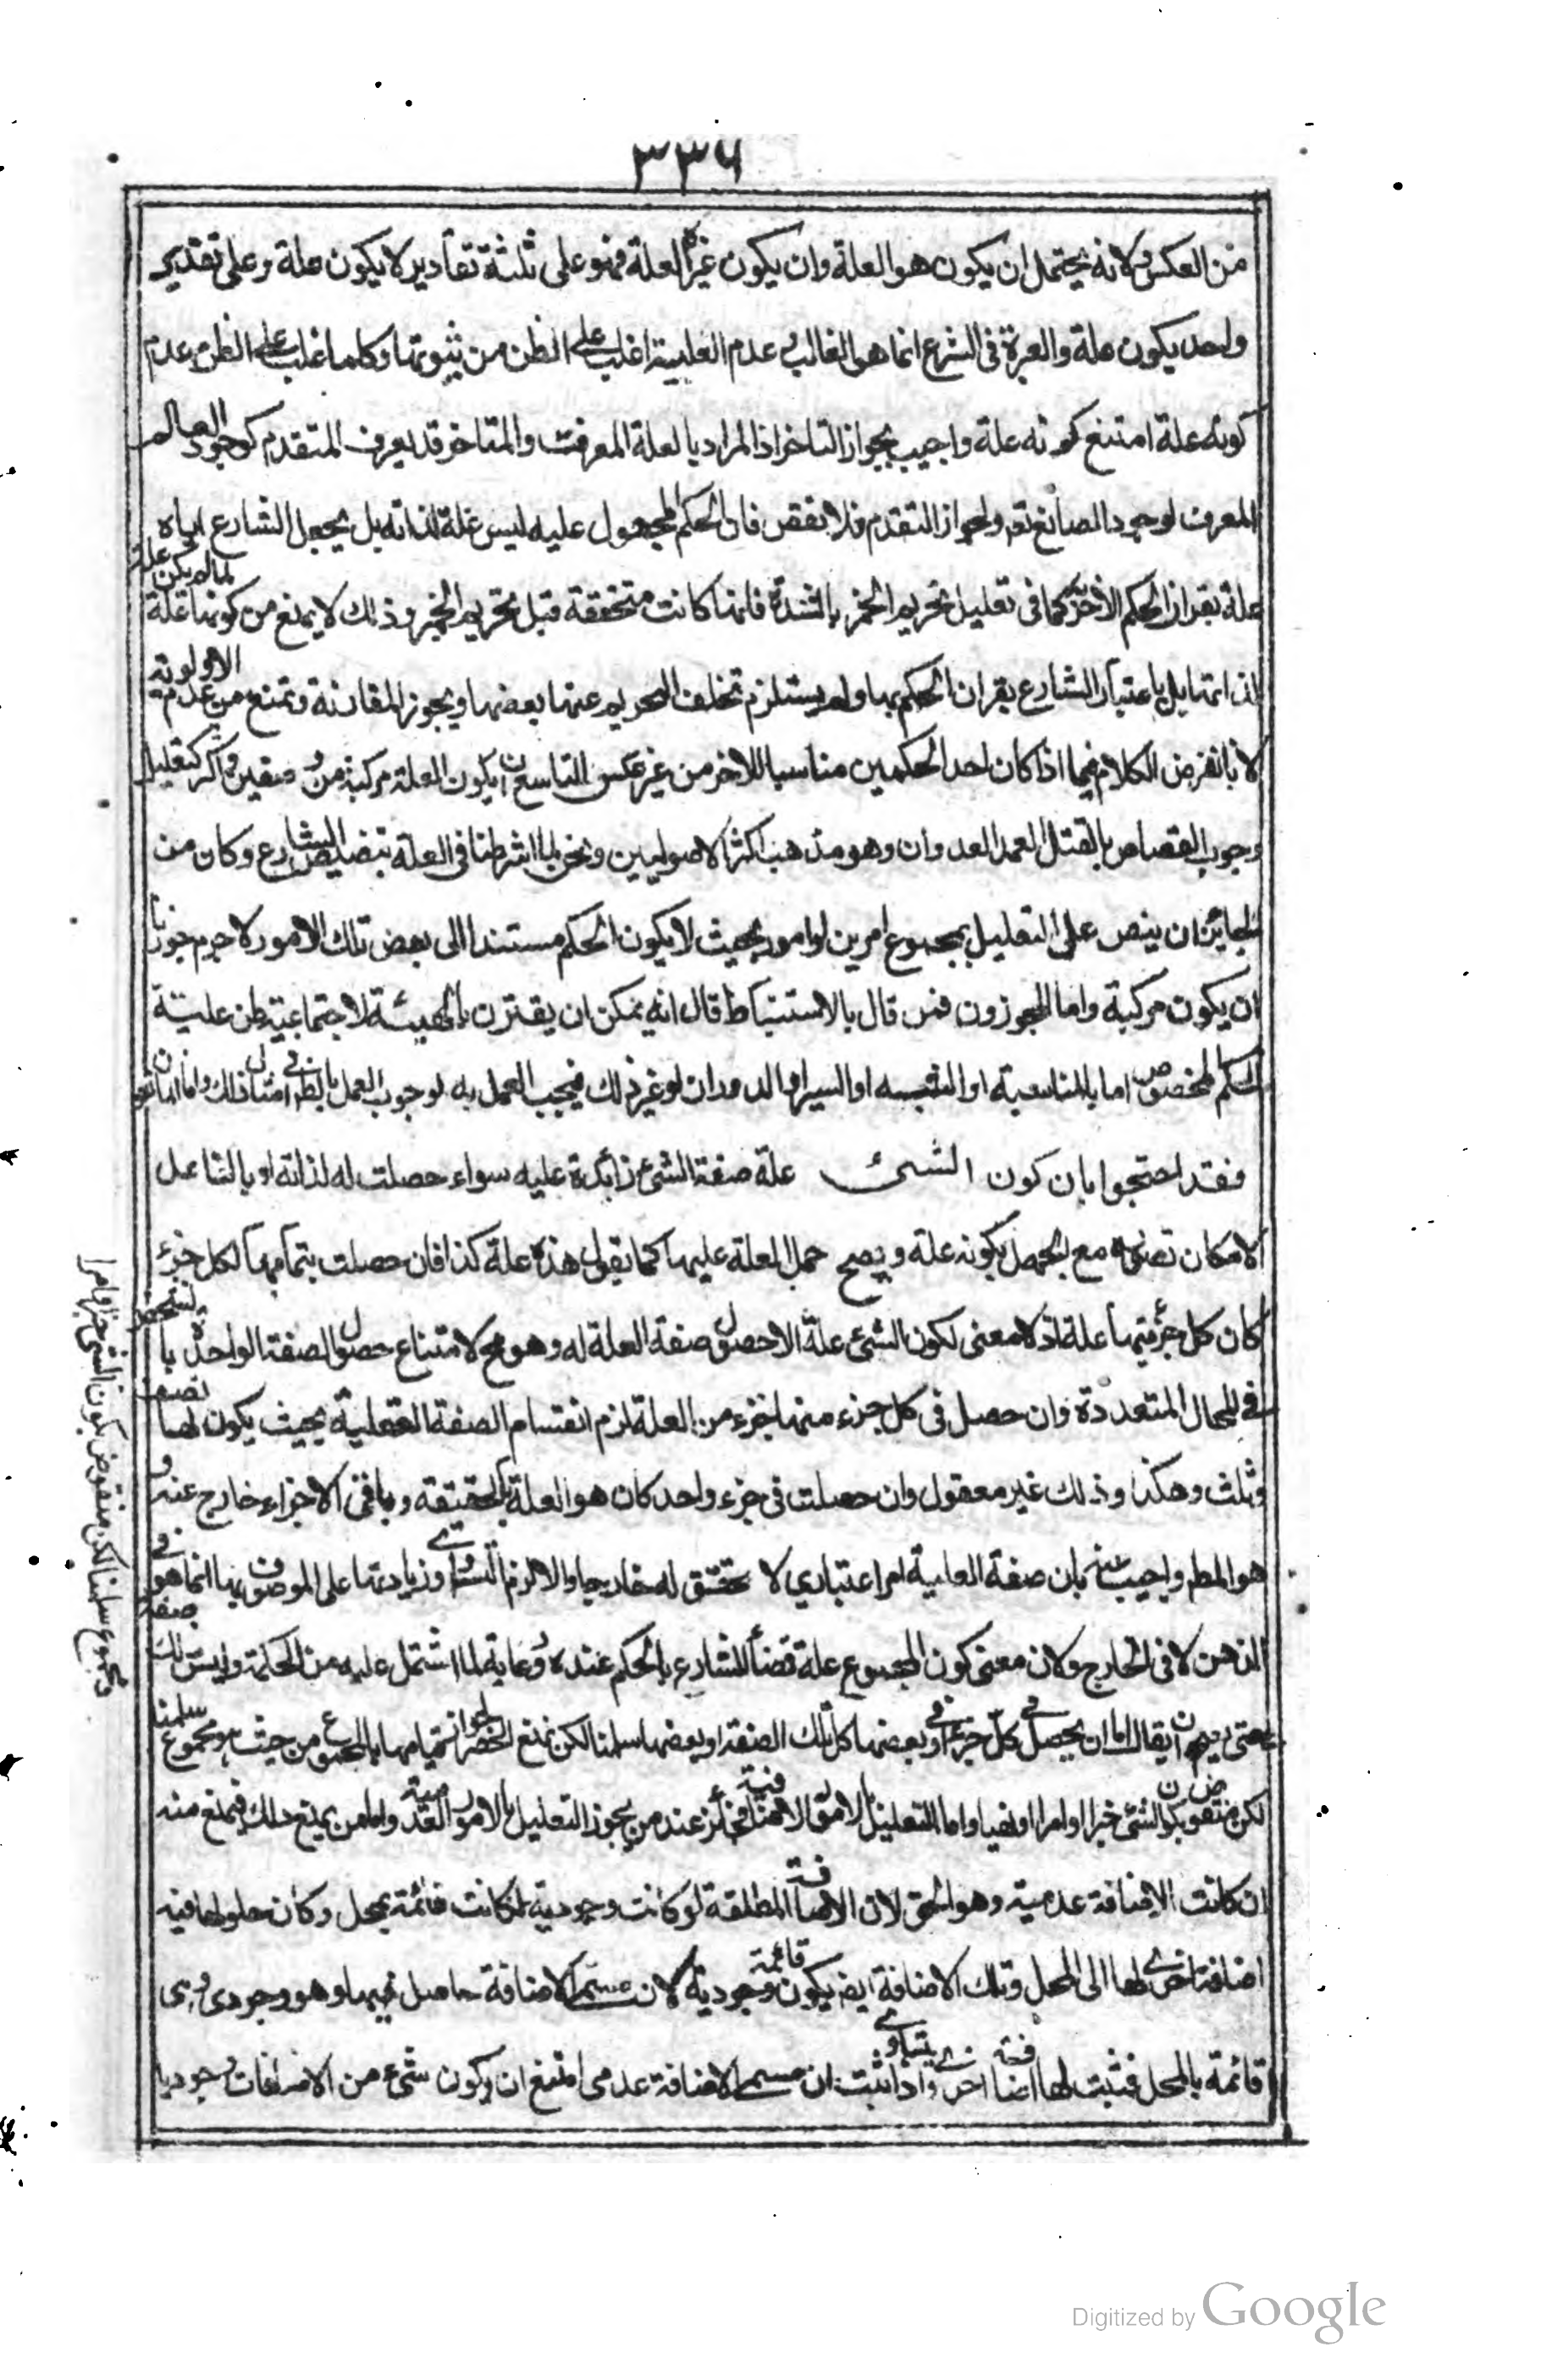 ٣٣٦
من العكس ولانه يحتمل ان يكون هو العلة وان يكون غيره العلة فهو على ثلثة تقادير لا يكون علة وعلى تقدير
واحد يكون علة والعبرة فى الشرع انما هو الغالب و عدم العلية اغلب على الظن من ثبوتها وكلما اغلب على الظن عدم
كونه علة امتنع كونه علة واجيب بجواز التاخر اذ المراد بالعلة المعرف والمتاخر قد يعرف المتقدم كوجود العالم
المعرف لوجود الصانع تع ولجواز التقدم فلا نقض فان الحكم المجهول عليه ليس علة لذاته بل يجعل الشارع اياه
علة بقران الحكم الآخر كما فى تعليل تحريم الخمر بالشدة فانها كانت متحققة قبل تحريم الخمر وذلك لا يمنع من كونها علة لما لم يكن علة
لذاتها بل باعتبار الشارع بقران الحكم بها ولم يستلزم تخلف التحريم عنها بعضها ويجوز المقارنة ونمنع من عدم الاولوية
لانا نفرض الكلام فيما اذا كان احد الحكمين مناسبا للاخر من غير عكس التاسع ان يكون العلة مركبة من وصفين واكثر كتعليل
وجوب القصاص بالقتل العمد العدوان وهو مذهب اكثر الاصوليين ونحن لما اشرطنا فى العلة بتنصيص الشارع وكان من
الجائز ان ينص على التعليل بمجموع امرين او امور بحيث لا يكون الحكم مستندا الى بعض تلك الامور لا جرم جوزنا
ان يكون مركبة واما المجوزون فمن قال بالاستنباط قال انه يمكن ان يقترن بالهيئة الاجتماعية ظن علية
الحكم المخصوص اما بالمناسبة او الشبه او السبر او الدوران او غير ذلك فيجب العمل به لوجوب العمل بالظن فى امثال ذلك واما المانعون
فقد احتجوا بان كون الشئ علة صفة الشئ زائدة عليه سواء حصلت له لذاته او بالفاعل
لامكان تصوره مع الجهل بكونه علة ويصح حمل العلة عليها كما يقول هذه علة كذا فان حصلت بتمامها لكل جزء
كان كل جزء منها علة اذ لا معنى لكون الشئ علة الا حصول صفة العلة له وهو مح لامتناع حصول الصفة الواحدة بالشخص
فى المحال المتعددة وان حصل فى كل جزء منها جزء من العلة لزم انقسام الصفة العقلية بحيث يكون لها نصف
وثلث وهكذا وذلك غير معقول وان حصلت فى جزء واحد كان هو العلة بالحقيقة وباقى الاجزاء خارج عنه و
هو المط واجيب عنه بان صفة العلية امر اعتبارى لا تحقق له خارجا والا لزم التسلسل وزيادتها على الموصوف بها انما هو فى
الذهن لا فى الخارج ولان معنى كون المجموع علة قضاء الشارع بالحكم عنده رعاية لما اشتمل عليه من الحكمة وليس ذلك صفة
حتى يقال اما ان يحصل فى كل جزء او فى بعضها كل تلك الصفة او بعضها سلمنا لكن نمنع الحصر لجواز قيامها بالمجموع من حيث هو مجموع سلمنا
لكن منقوض بكون الشئ خبرا او امرا او نهيا واما التعليل بالامور الاضافية فجائز عند من يجوز التعليل بالامور العدمية واما من يمنع ذلك فيمنع منه
ان كانت الاضافة عدمية وهو الحق لان الاضافة المطلقة لو كانت وجودية لكانت قائمة بمحل وكان حلولها فيه
اضافة اخرى لها الى المحل وتلك الاضافة ايض يكون وجودية قائمة لان مسمى الاضافة حاصل فيها وهو وجودى وهى
قائمة بالمحل فثبت لها اضافة اخرى واذا ثبت ان مسمى الاضافة عدمى امتنع ان يكون شئ من الاضافات وجوديا
مجموع سلمنا لكن منقوض بكون الشئ خبرا او امرا
Digitized by Google